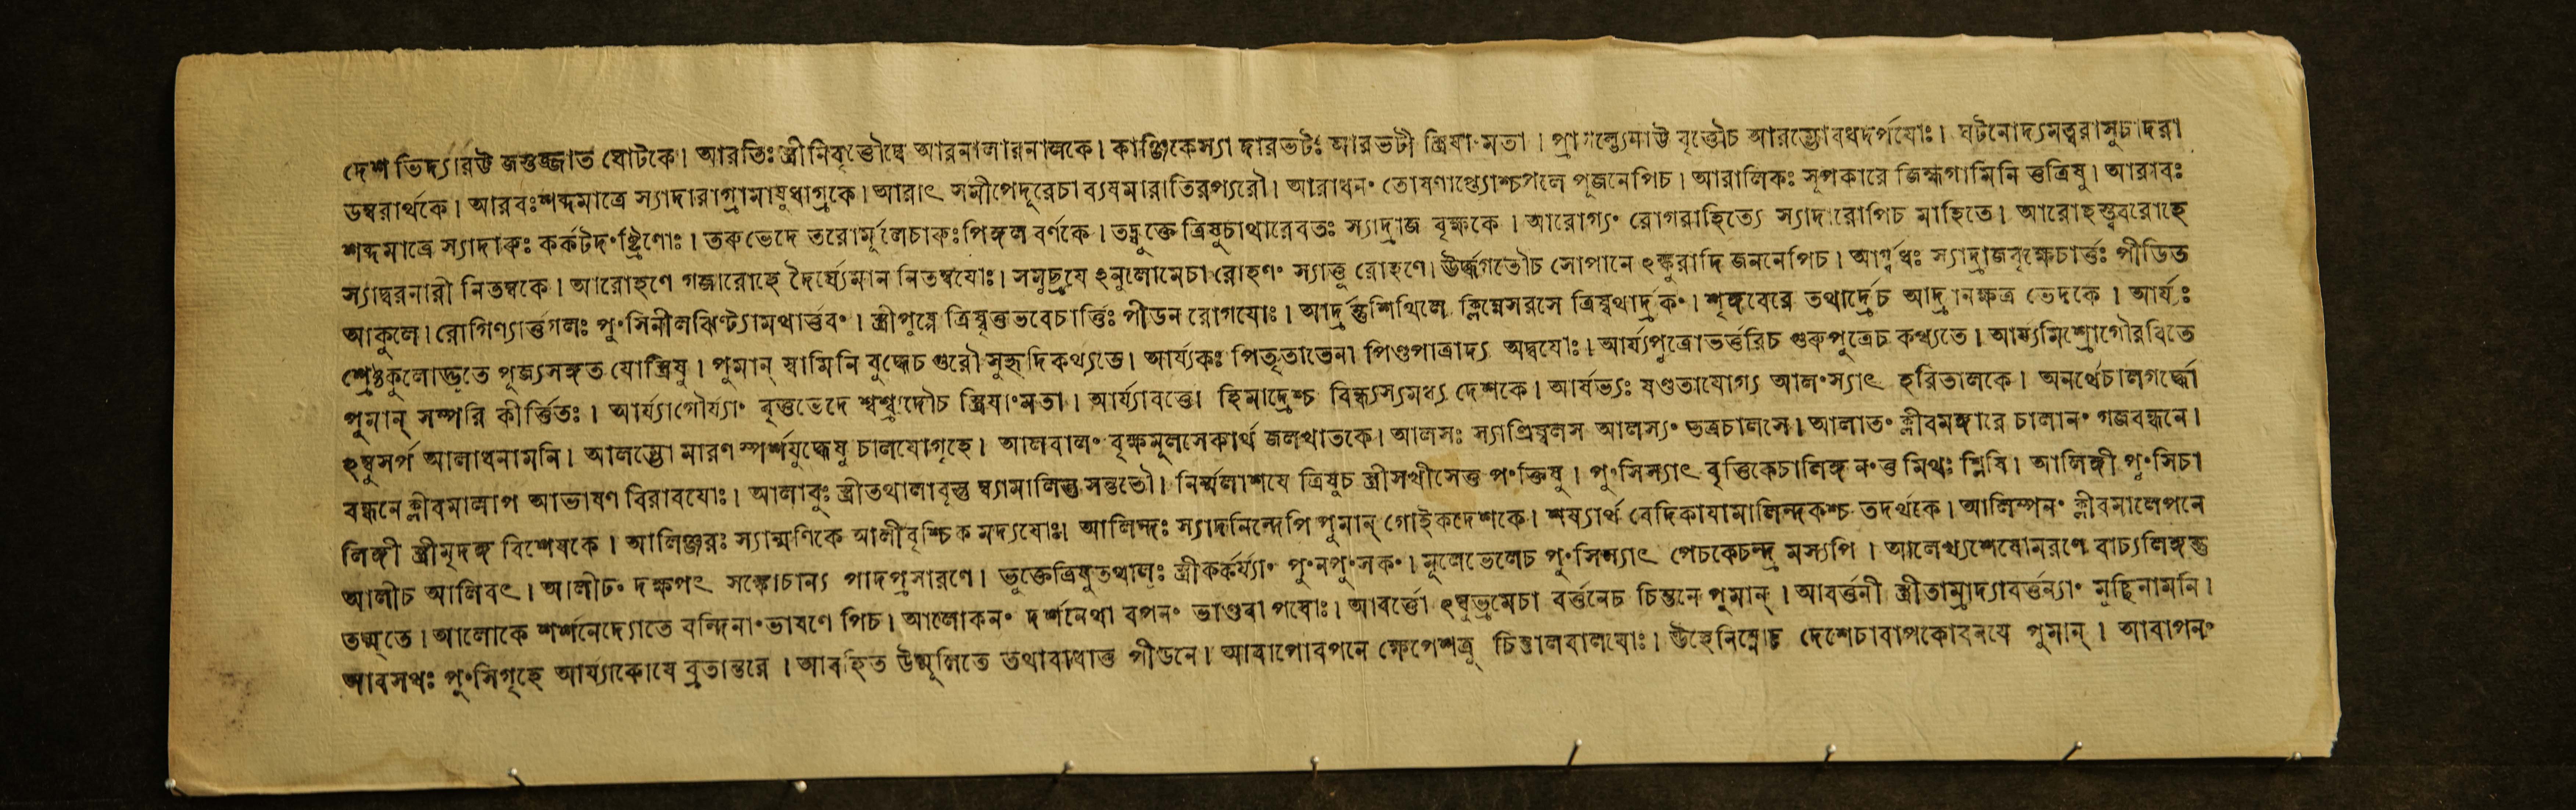 দেশ ভিদ্যারউ জন্তুজ্জাত ঘোটকে। আরতিঃ স্ত্রীনিবৃত্তৌদ্বে আরনালারনালকে। কাঞ্জিকেস্যা দারভটঃ আরভটী স্ত্রিযাংমতা। বৃত্তৌচ আরম্ভোবধদর্পযোঃ। ঘটনোদ্যমত্বরাসুচাদরা
ডম্বরার্থকে। আরবঃশব্দমাত্রে স্যাদারাগ্রামাযুধাগ্রকে। আরাৎ সমীপেদূরেচা ব্যযমারাতিরপ্যরৌ। আরাধনং তোষণাপ্ত্যোশ্চপলে পূজনেপিচ। আরালিকঃ সূপকারে জিহ্মগামিনি ত্তত্রিষু। আরাবঃ
শব্দমাত্রে স্যাদারুঃ কর্কটদংষ্ট্রিণোঃ। তরুভেদে তরোর্মূলেচারুঃপিঙ্গল বর্ণকে। তদ্যুক্তে ত্রিষুচাথারেবতঃ স্যাদ্রাজ বৃক্ষকে। আরোগ্যং রোগরাহিত্যে স্যাদারোপিচ মাহিতে। আরোহস্ত্ববরোহে
স্যাদ্বরনারী নিতম্বকে। আরোহণে গজারোহে দৈর্ঘ্যেমান নিতম্বযোঃ। সমুচ্রযে ঽনুলোমেচা রোহণং স্যাত্তু রোহণে। ঊর্দ্ধগতৌচ সোপানে ঽঙ্কুরাদি জননেপিচ। আর্গ্বধঃ স্যাদ্রাজবৃক্ষেচার্ত্তঃ পীডিত
আকুলে। রোগিণ্যার্ত্তগলঃ পুংসিনীলঝিণ্ট্যামথার্ত্তবং। স্ত্রীপুষ্পে ত্রিষৃত্তভবেচার্ত্তিঃ পীডন রোগযোঃ। আর্দ্রন্তুশিথিলে ক্লিন্নেসরসে ত্রিষ্বথার্দ্রকং। শৃঙ্গবেরে তথার্দ্রেচ আর্দ্রানক্ষত্র ভেদকে। আর্যঃ
শ্রেষ্ঠকুলোদ্ভূতে পূজ্যসঙ্গত যোস্ত্রিষু। পুমান্ স্বামিনি বুদ্ধেচ গুরৌ সুহৃদিকথ্যতে। আর্য্যকঃ পিতৃতাতেনা পিণ্ডপাত্রাদ্য অদ্বযোঃ। আর্য্যপুত্রোভর্ত্তরিচ গুরুপুত্রেচ কথ্যতে। আর্য্যমিশ্রোগৌরবিতে
পুমান্ সম্পরি কীর্ত্তিতঃ। আর্য্যাগৌর্য্যাং বৃত্তভেদে শ্বশ্র্বাদৌচ স্ত্রিযাংমতা। আর্য্যাবর্ত্তো হিমাদ্রেশ্চ বিন্ধ্যস্যমধ্য দেশকে। আর্ষভ্যঃ ষণ্ডতাযোগ্য আলংস্যাৎ হরিতালকে। অনর্থেচালগর্দ্ধো
ঽম্বুসর্প আলাধনামনি। আলম্ভো মারণ স্পর্শযুদ্ধেষু চালযোগৃহে। আলবালং বৃক্ষমূলসেকার্থ জলখাতকে। আলসঃ স্যাত্ত্রিষ্বলস আলস্যং তত্রচালসে। আলাতং ক্লীবমঙ্গারে চালানং গজবন্ধনে।
বন্ধনে ক্লীবমালাপ আভাষণ বিরাবযোঃ। আলাবুঃ স্ত্রীতথালাবূস্তু ম্ব্যামালিস্তু সন্ততৌ। নির্ম্মলাশযে ত্রিষুচ স্ত্রীসখীসেতু পংক্তিষু। পুংসিস্যাৎ বৃত্তিকেচালিঙ্গ নংতু মিথঃ শ্লিষি। আলিঙ্গী পুংসিচা
লিঙ্গী স্ত্রীমৃদঙ্গ বিশেষকে। আলিঞ্জরঃ স্যান্মণিকে আলীবৃশ্চিক মদ্যযোঃ। আলিন্দঃ স্যাদনিন্দেপি পুমান্ গোইকদেশকে। শষ্যার্থ বেদিকাযামালিন্দকশ্চ তদর্থকে। আলিম্পনং ক্লীবমালেপনে
আলীচ আলিবৎ। আলীঢং দক্ষপৎ সঙ্কোচান্য পাদপ্রসারণে। ভুক্তেত্রিষুতথালুঃ স্ত্রীকর্কর্য্যাং পুংনপুংসকং। মূলেভেলেচ পুংসিস্যাৎ পেচকেচন্দ্র মস্যপি। আলেখ্যশেষোমরণে বাচ্যলিঙ্গস্তু
তন্মৃতে। আলোকে শর্শনেদ্যোতে বন্দিনাংভাষণে পিচ। আলোকনং দর্শনেথা বপনং ভাণ্ডবা পযোঃ। আবর্ত্তো ঽম্বুভ্রমেচা বর্ত্তনেচ চিন্তনে পুমান্। আবর্ত্তনী স্ত্রীতাম্রাদ্যাবর্ত্তন্যাং মুছিনামনি।
আবসথঃ পুংসিগৃহে আর্য্যাকোষে ব্রতান্তরে। আবহিত উন্মূলিতে তথাবাধাতু পীডনে। আবাপোবপনে ক্ষেপেশত্রু চিন্তালবালযোঃ। ঊহেনিম্নোচ্চ দেশেচাবাপকোবনযে পুমান্। আবাপনং